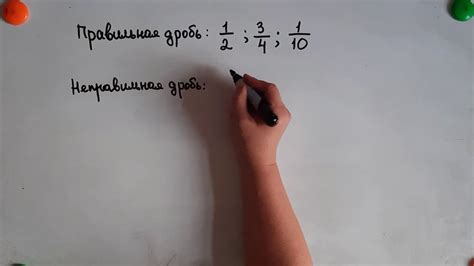 Правильная дробь: 1/2 ; 3/4 ; 1/10
Неправильная дробь: